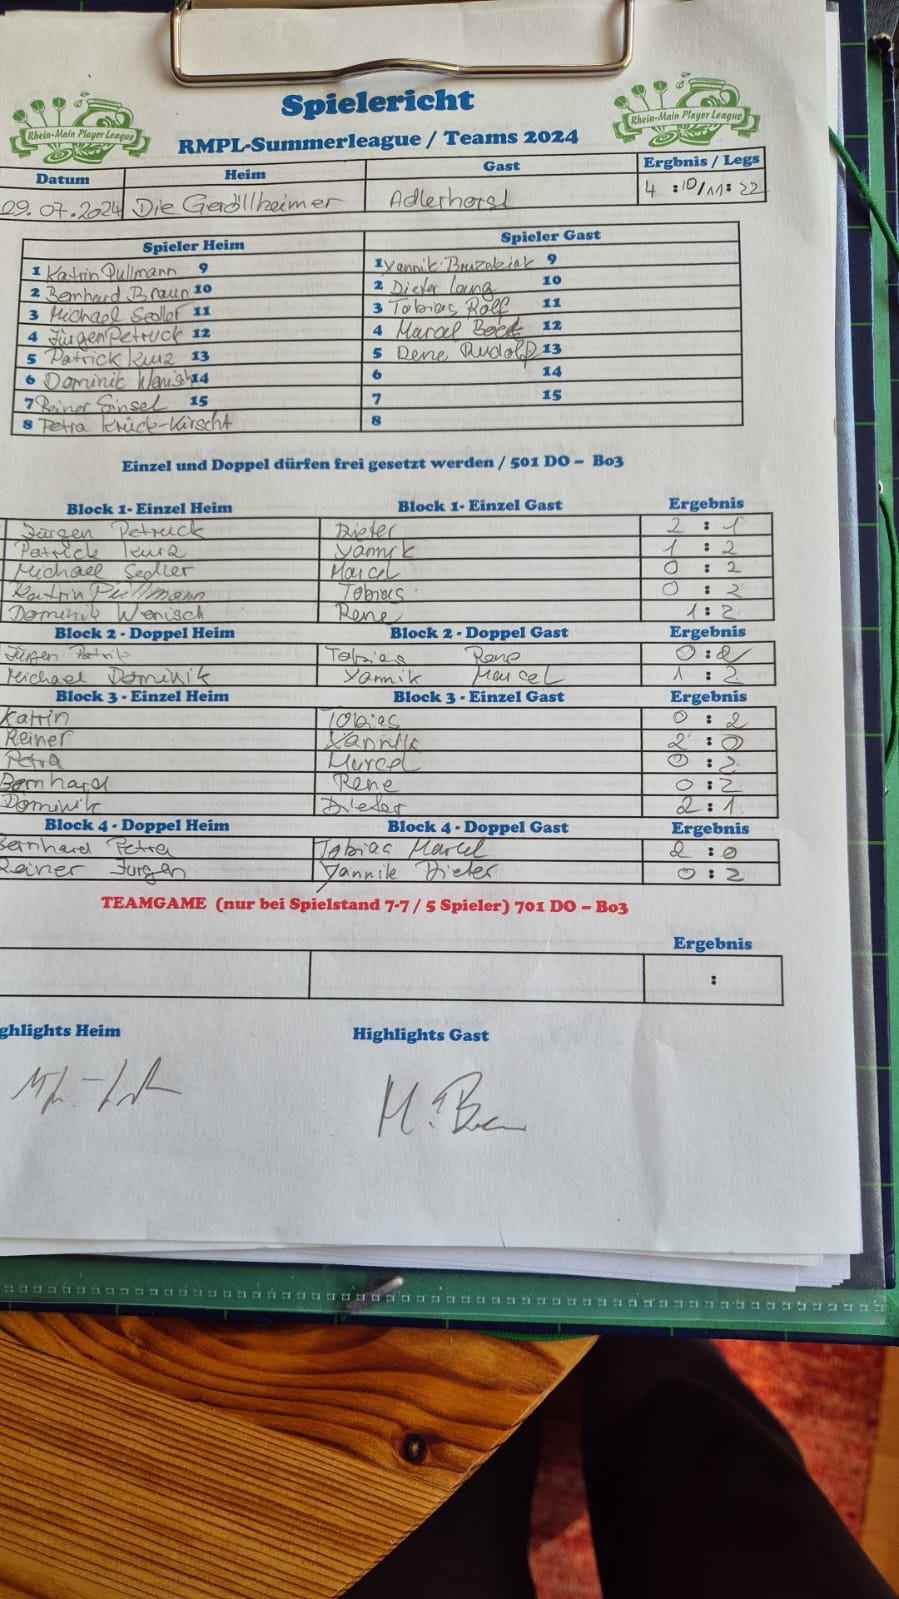 Spielericht
Rhein-Main Player League
Rhein-Main Player League
RMPL-Summerleague / Teams 2024
Datum Heim Gast Ergbnis / Legs
29.07.2024 Die Geröllheimer Adlerhorst 4 :10/11: 22
Spieler Heim Spieler Gast
1 Katrin Pullmann 9 1 Yannik 9
2 Bernhard Braun 10 2 Dieter Lang 10
3 Michael Sedler 11 3 Tobias Rolf 11
4 Jürgen Petruck 12 4 Marcel Beck 12
5 Patrick Kurz 13 5 Rene Rudolf 13
6 Dominik Wenisch 14 6 14
7 Reiner Sinsel 15 7 15
8 Petra Krück-Kirscht 8
Einzel und Doppel dürfen frei gesetzt werden / 501 DO – Bo3
Block 1- Einzel Heim Block 1- Einzel Gast Ergebnis
Jürgen Petruck Dieter 2 : 1
Patrick Kurz Yannik 1 : 2
Michael Sedler Marcel 0 : 2
Katrin Pullmann Tobias 0 : 2
Dominik Wenisch Rene 1 : 2
Block 2 - Doppel Heim Block 2 - Doppel Gast Ergebnis
Jürgen Patrik Tobias Rene 0 : 2
Michael Dominik Yannik Marcel 1 : 2
Block 3 - Einzel Heim Block 3 - Einzel Gast Ergebnis
Katrin Tobias 0 : 2
Reiner Yannik 2 : 0
Petra Marcel 0 : 2
Bernhard Rene 0 : 2
Dominik Dieter 2 : 1
Block 4 - Doppel Heim Block 4 - Doppel Gast Ergebnis
Bernhard Petra Tobias Marcel 2 : 0
Reiner Jurgen Yannik Dieter 0 : 2
TEAMGAME (nur bei Spielstand 7-7 / 5 Spieler) 701 DO – Bo3
Ergebnis
:
ghlights Heim Highlights Gast